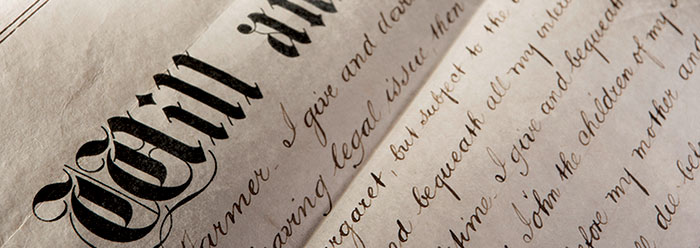 Will an
armer. I give and dev
aving legal issue then
rgaret, but subject to the
nd bequeath all my inte
time. I give and bequeath
John the children of my
fore my mother an
ll die be